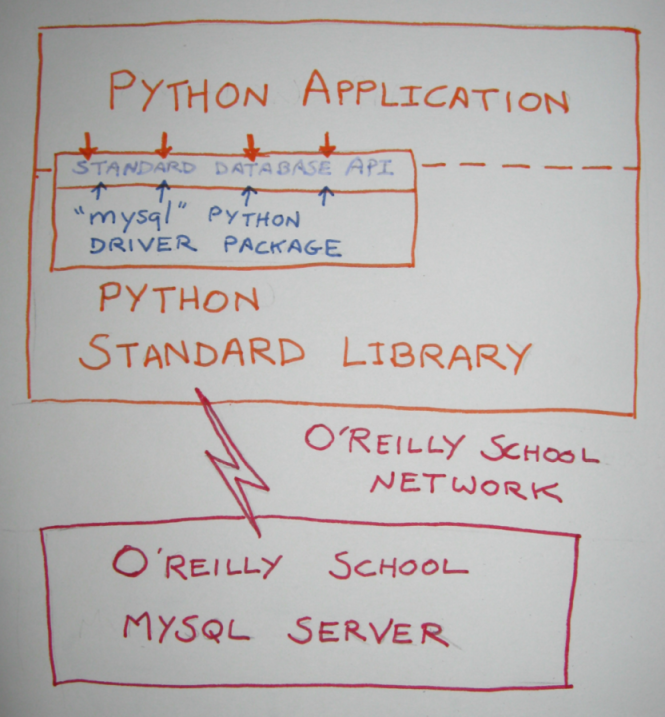 PYTHON APPLICATION
STANDARD DATABASE API
"mysql" PYTHON
DRIVER PACKAGE
PYTHON
STANDARD LIBRARY
O'REILLY SCHOOL
NETWORK
O'REILLY SCHOOL
MYSQL SERVER